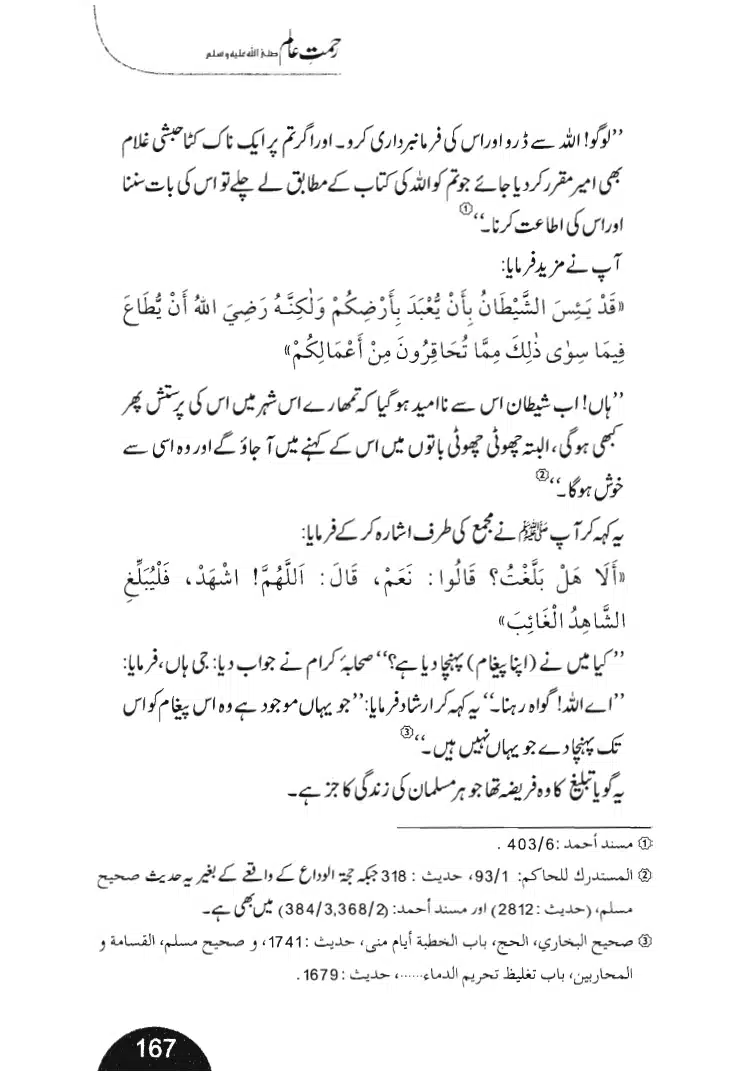 رحمتِ عالم صلی اللہ علیہ وسلم
’’لوگو! اللہ سے ڈرو اور اس کی فرمانبرداری کرو۔ اور اگر تم پر ایک ناک کٹا حبشی غلام
بھی امیر مقرر کر دیا جائے جو تم کو اللہ کی کتاب کے مطابق لے چلے تو اس کی بات سننا
اور اس کی اطاعت کرنا۔‘‘①
آپ نے مزید فرمایا:
«قَدْ يَئِسَ الشَّيْطَانُ بِأَنْ يُّعْبَدَ بِأَرْضِكُمْ وَلٰكِنَّهُ رَضِيَ اللهُ أَنْ يُّطَاعَ
فِيمَا سِوٰى ذٰلِكَ مِمَّا تُحَاقِرُونَ مِنْ أَعْمَالِكُمْ»
’’ہاں! اب شیطان اس سے ناامید ہو گیا کہ تمھارے اس شہر میں اس کی پرستش پھر
کبھی ہوگی، البتہ چھوٹی چھوٹی باتوں میں اس کے کہنے میں آ جاؤ گے اور وہ اسی سے
خوش ہوگا۔‘‘②
یہ کہہ کر آپ ﷺ نے مجمع کی طرف اشارہ کر کے فرمایا:
«أَلَا هَلْ بَلَّغْتُ؟ قَالُوا: نَعَمْ، قَالَ: اَللّٰهُمَّ! اشْهَدْ، فَلْيُبَلِّغِ
الشَّاهِدُ الْغَائِبَ»
’’کیا میں نے (اپنا پیغام) پہنچا دیا ہے؟‘‘ صحابۂ کرام نے جواب دیا: جی ہاں، فرمایا:
’’اے اللہ! گواہ رہنا۔‘‘ یہ کہہ کر ارشاد فرمایا: ’’جو یہاں موجود ہے وہ اس پیغام کو اس
تک پہنچا دے جو یہاں نہیں ہیں۔‘‘③
یہ گویا تبلیغ کا وہ فریضہ تھا جو ہر مسلمان کی زندگی کا جز ہے۔
① مسند أحمد: 403/6 .
② المستدرك للحاكم: 93/1، حدیث : 318 جبکہ حجۃ الوداع کے واقعے کے بغیر یہ حدیث صحیح
مسلم، (حدیث : 2812) اور مسند أحمد: (384/3,368/2) میں بھی ہے۔
③ صحیح البخاري، الحج، باب الخطبة أيام منى، حدیث : 1741، و صحيح مسلم، القسامة و
المحاربين، باب تغليظ تحريم الدماء......، حديث : 1679 .
167